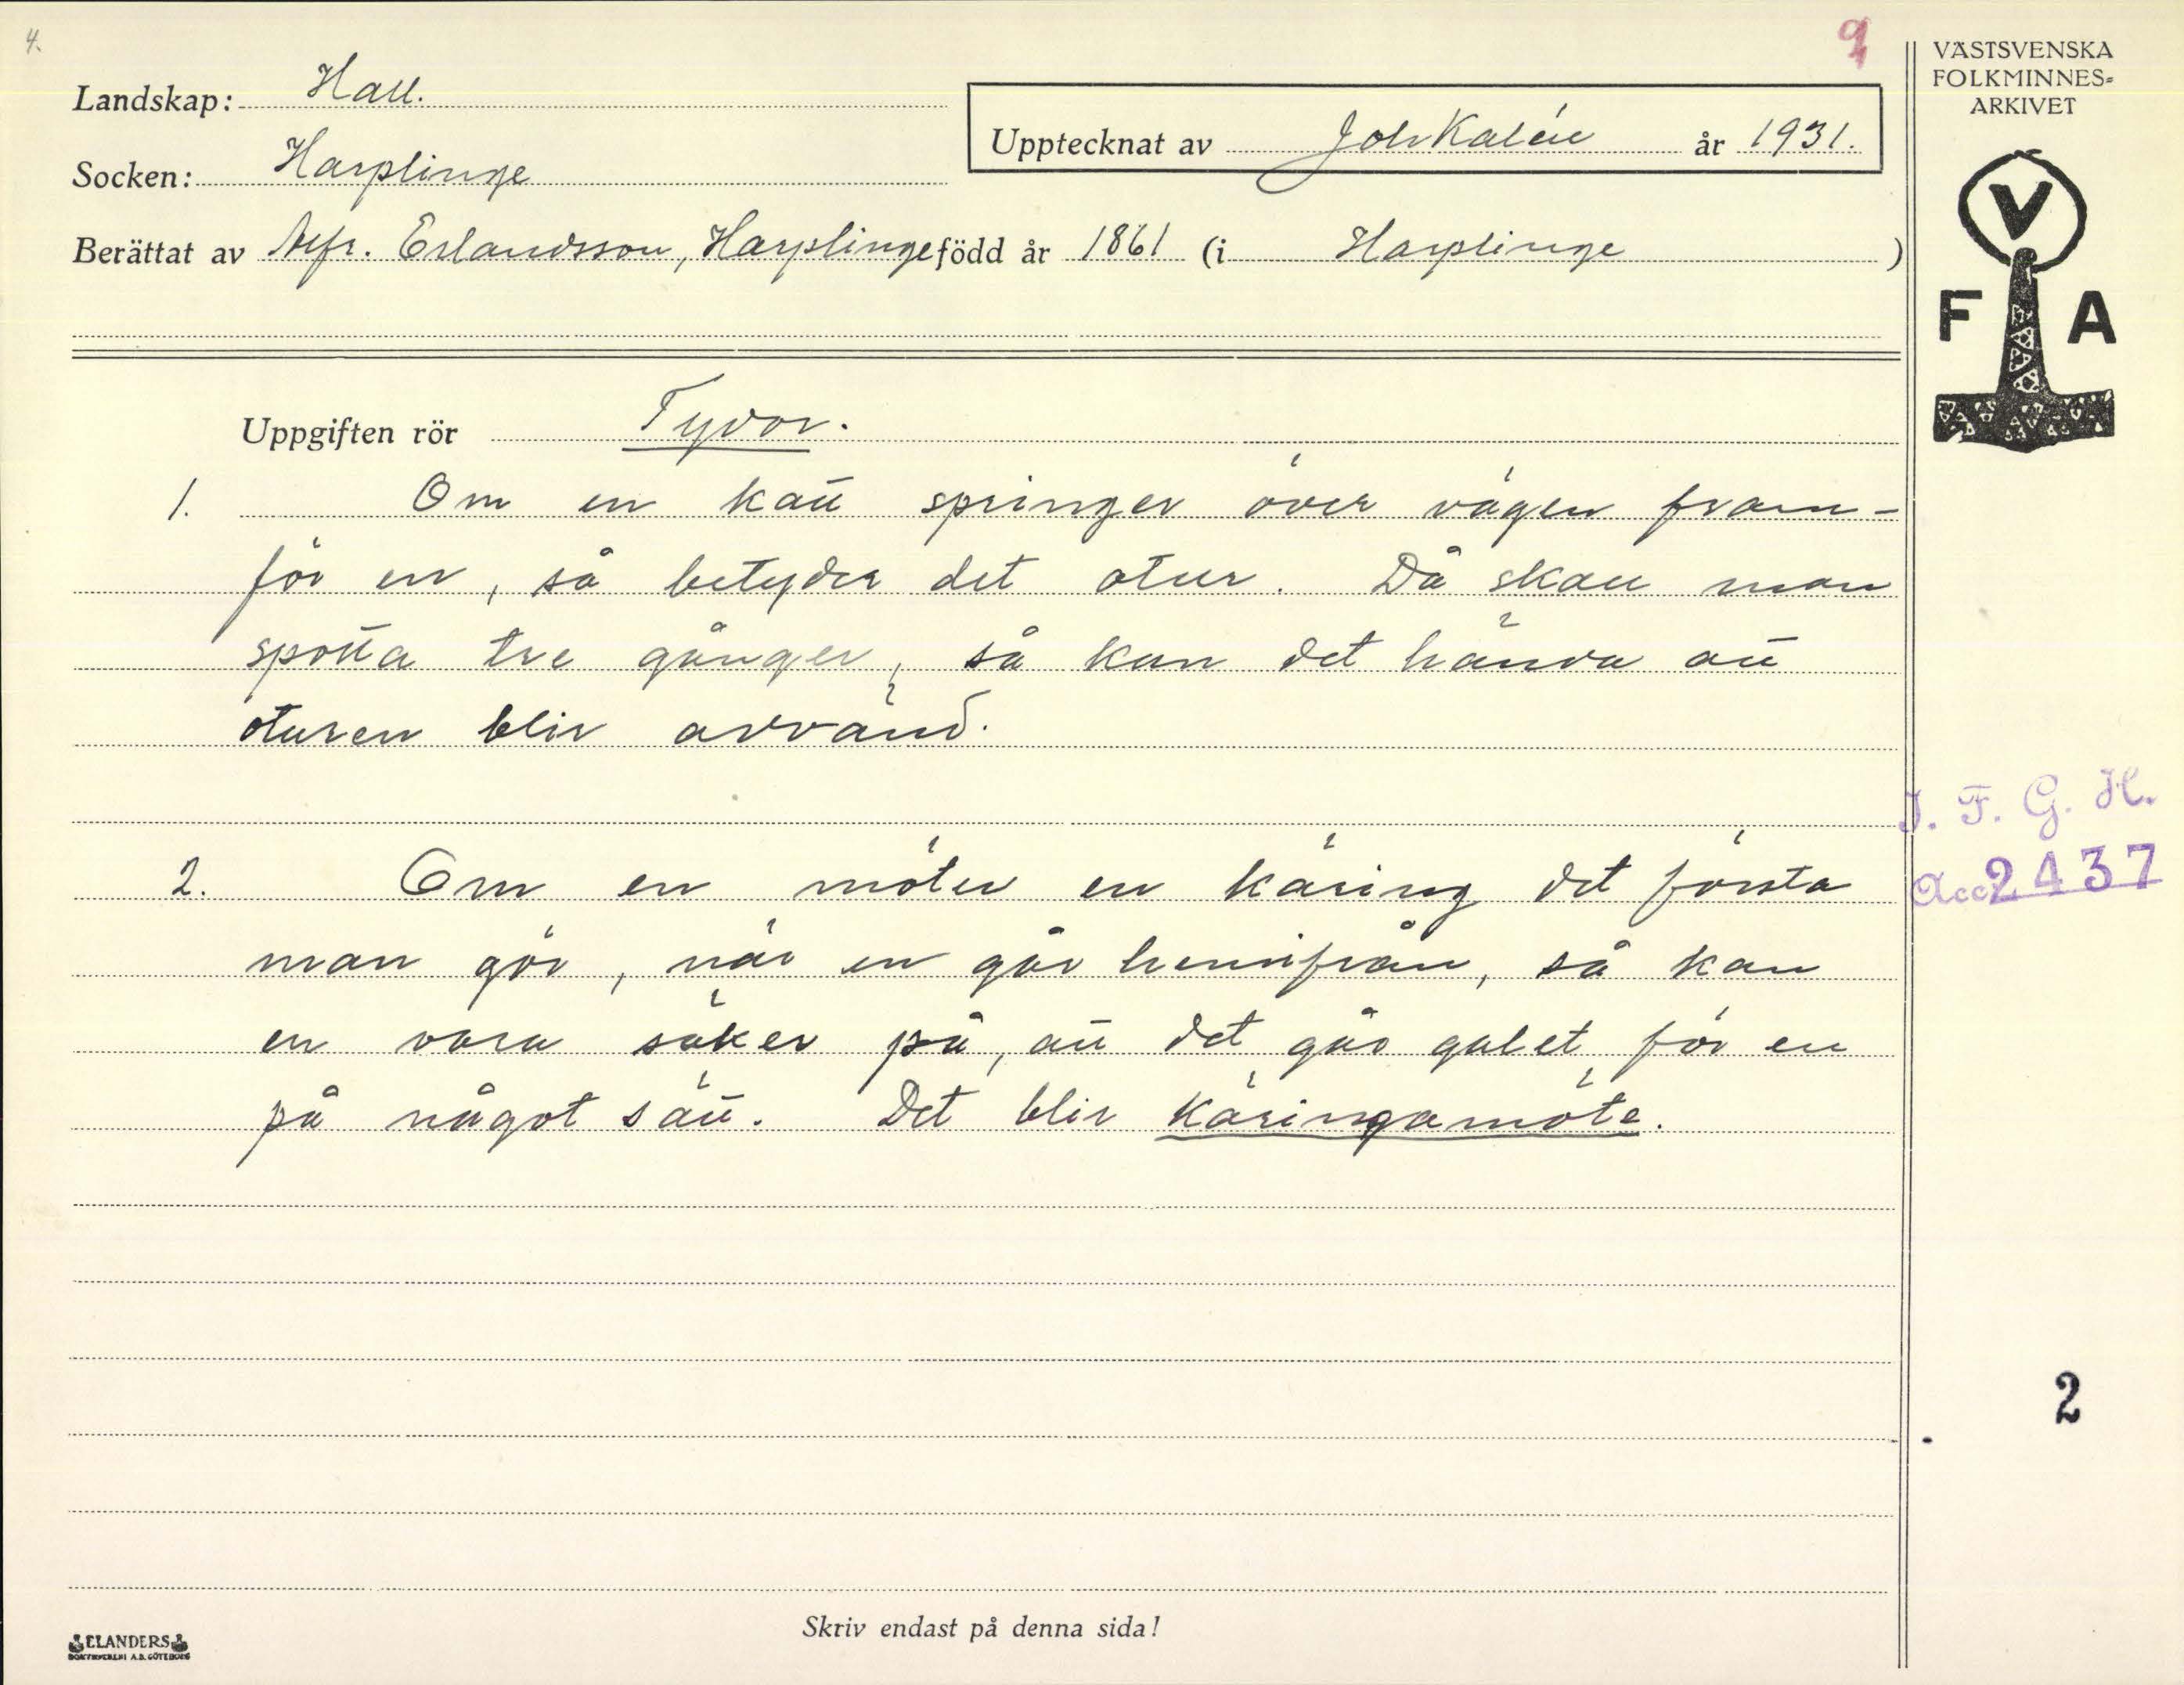 4.
9
VÄSTSVENSKA
FOLKMINNES-
ARKIVET
Landskap: Hall.
Upptecknat av Joh Kalén år 1931.
Socken: Harplinge
Berättat av Alfr. Erlandsson, Harplinge född år 1861 (i Harplinge )
V
F A
Uppgiften rör Tydor.
1. Om en katt springer över vägen fram-
för en, så betyder det otur. Då skall man
spotta tre gånger, så kan det hända att
oturen blir avvänd.
I. F. G. H.
Acc 2437
2. Om en möter en käring det första
man gör, när en går hemifrån, så kan
en vara säker på, att det går galet för en
på något sätt. Det blir käringamöte.
2
Skriv endast på denna sida!
ELANDERS
BOKTRYCKERI A.B. GÖTEBORG